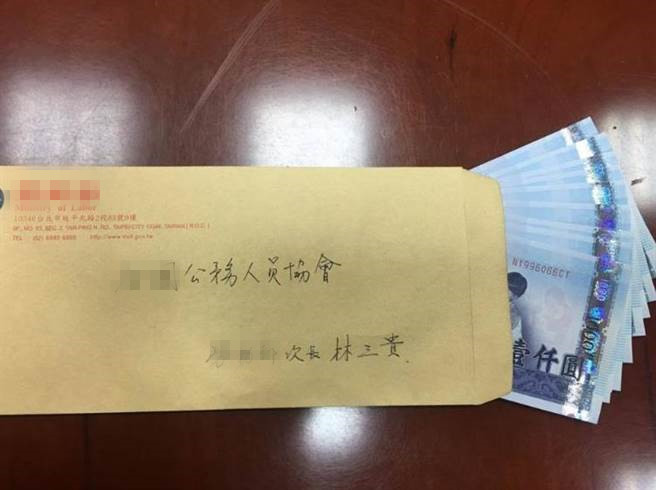 Ministry of Labor
10346台北市延平北路2段83號9樓
9F., NO. 83, SEC. 2, YANPING N. RD., TAIPEI CITY 10346, TAIWAN(R.O.C.)
TEL： (02) 8590 http://www.mol.gov.tw
公務人員協會
次長 林三貴
NY996066CT
壹仟圓